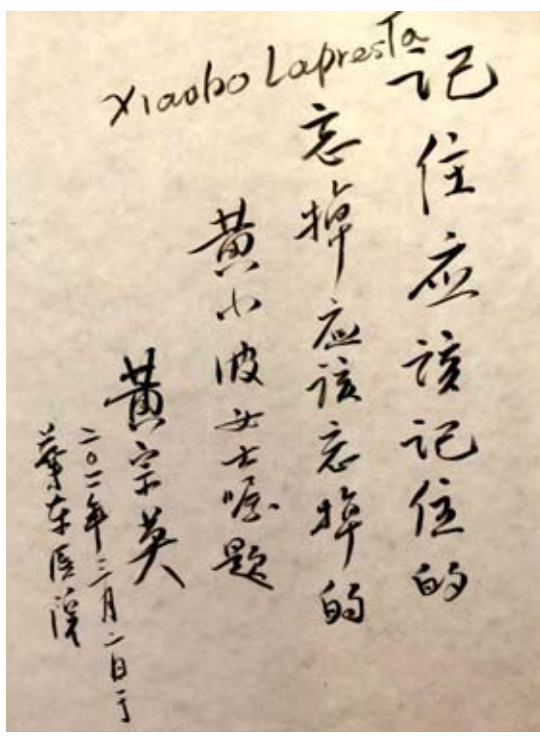 Xiaobo Lapresta
记住应该记住的
忘掉应该忘掉的
黄小波女士嘱题
黄宗英
二〇一一年三月二日于
华东医院